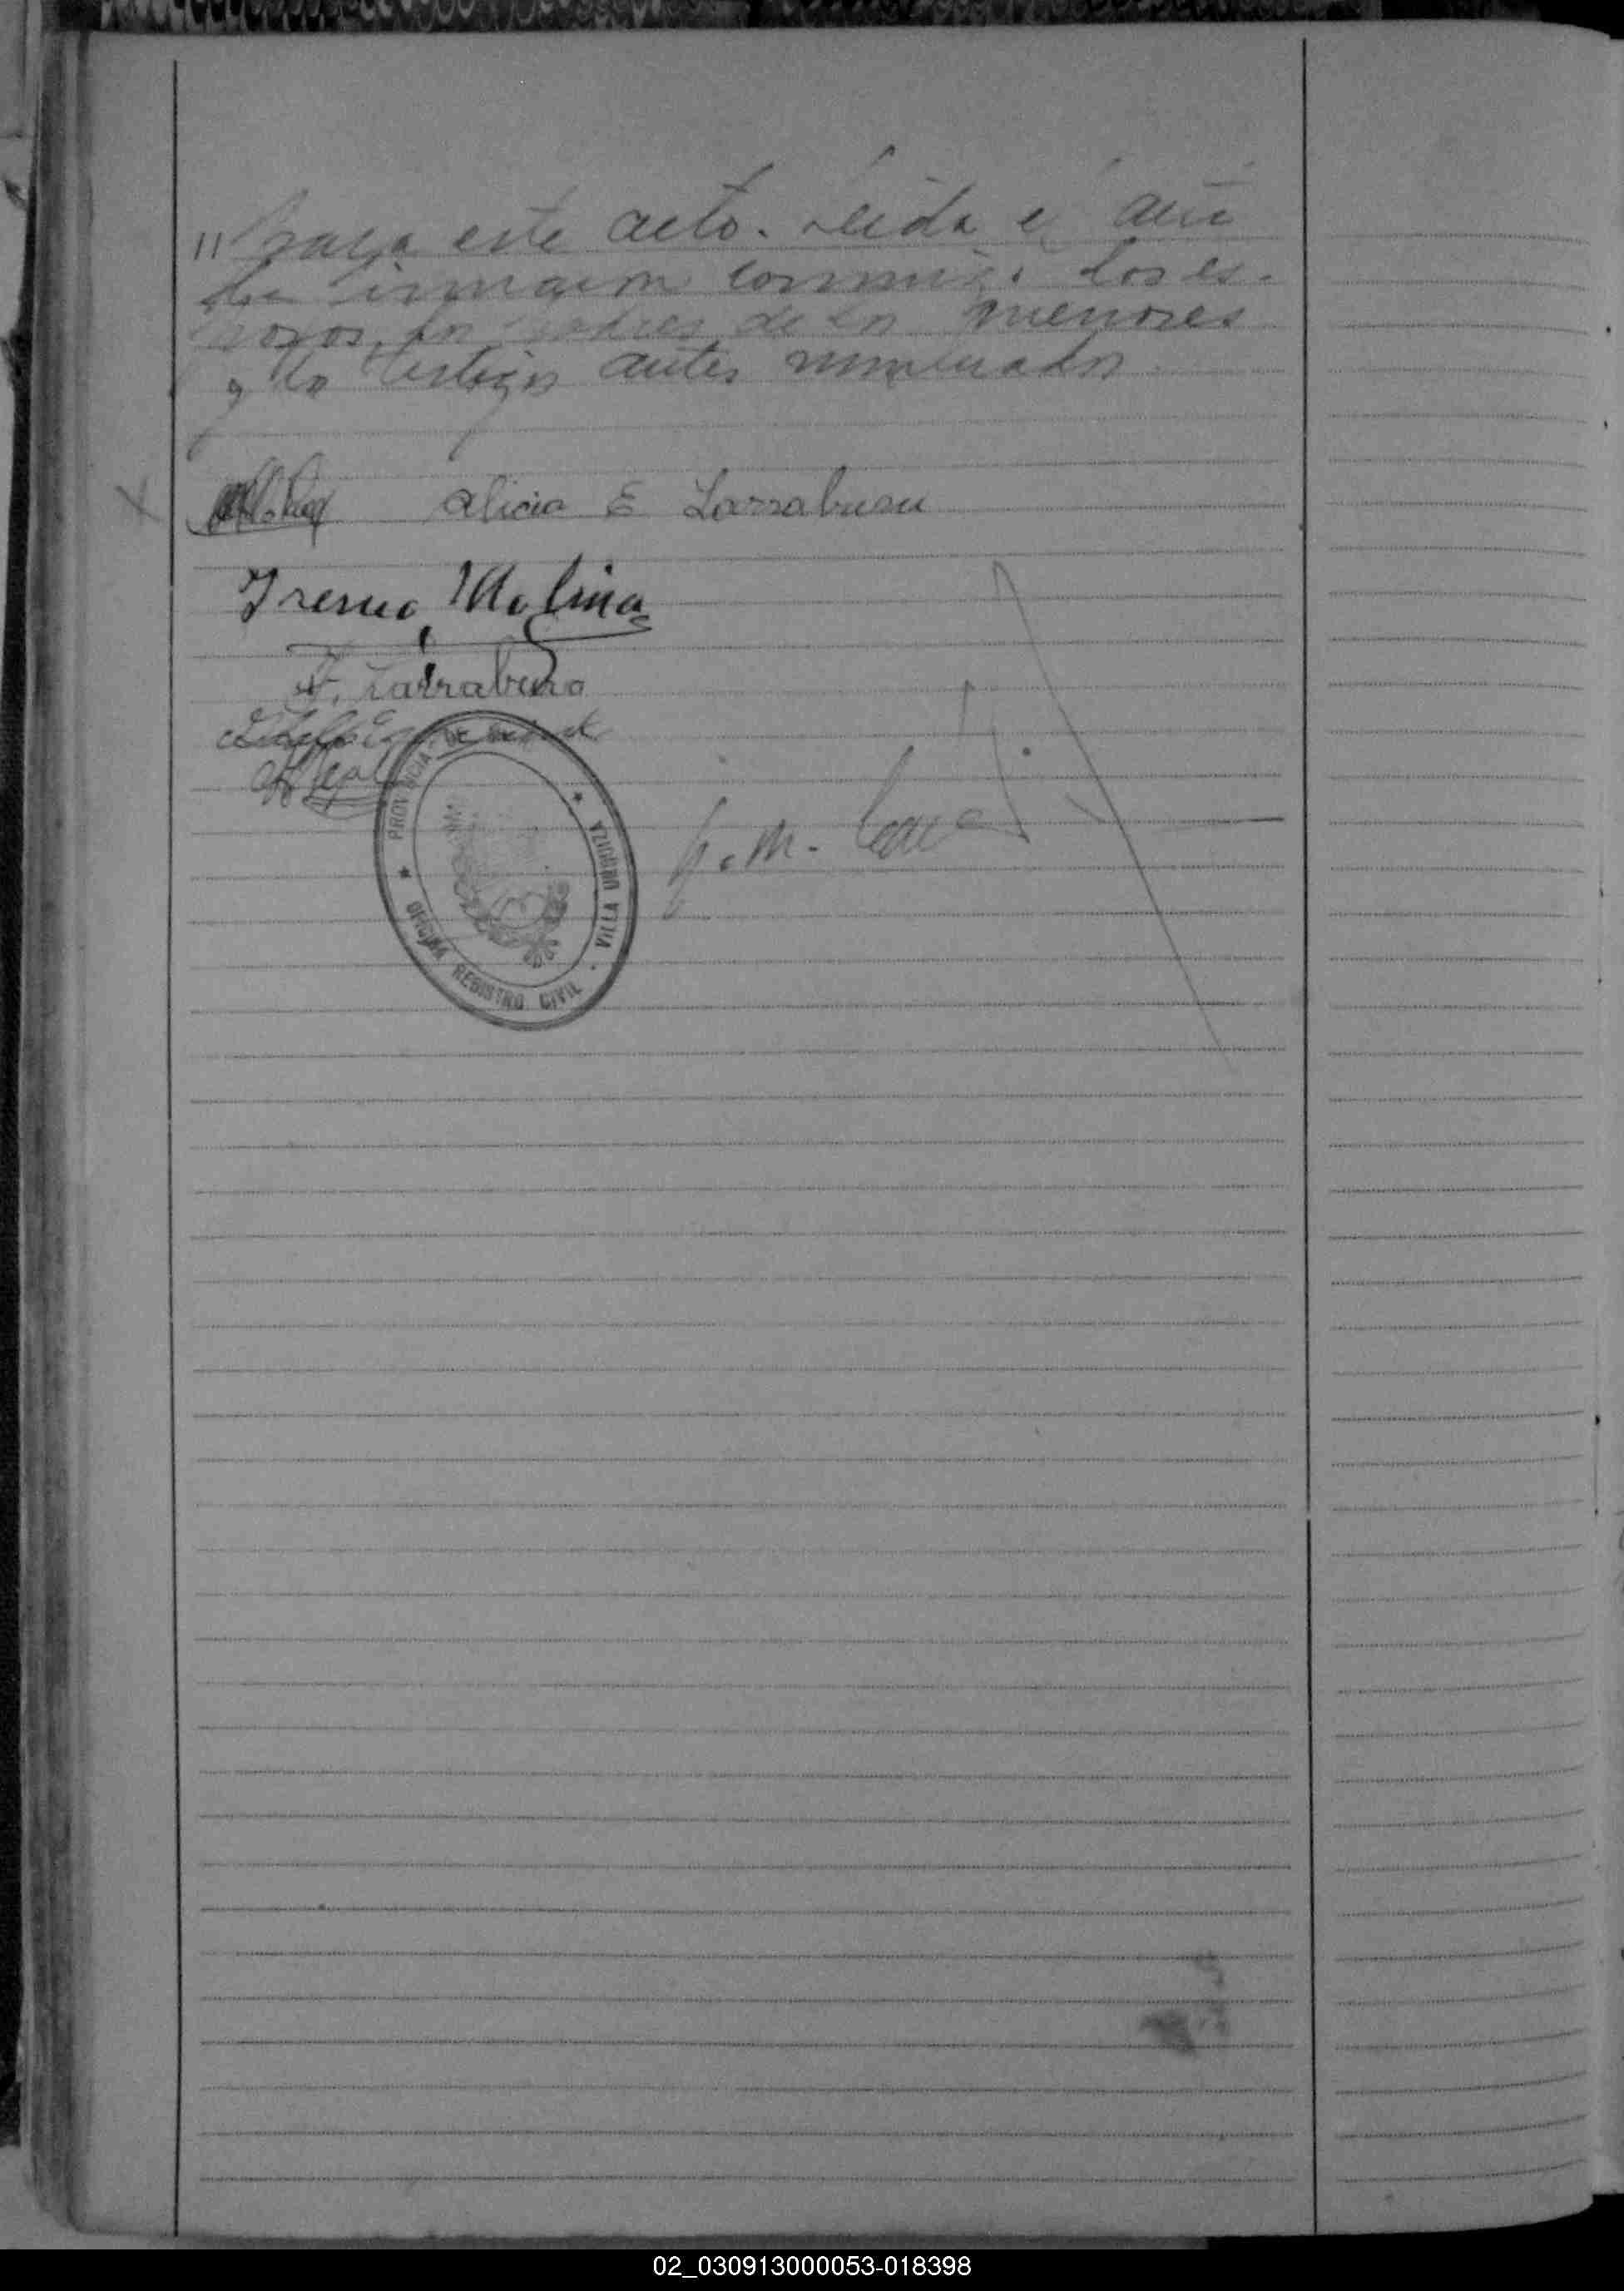 " para este acto. Leida el acta
la firmaron conmigo los es-
posos, los padres de los menores
y los testigos antes nombrados.
Alicia E Larraburu
Ireneo Molina
F. Larraburu
PROVINCIA DE
VILLA URQUIZA
OFICINA REGISTRO CIVIL
J. M.
02_030913000053-018398